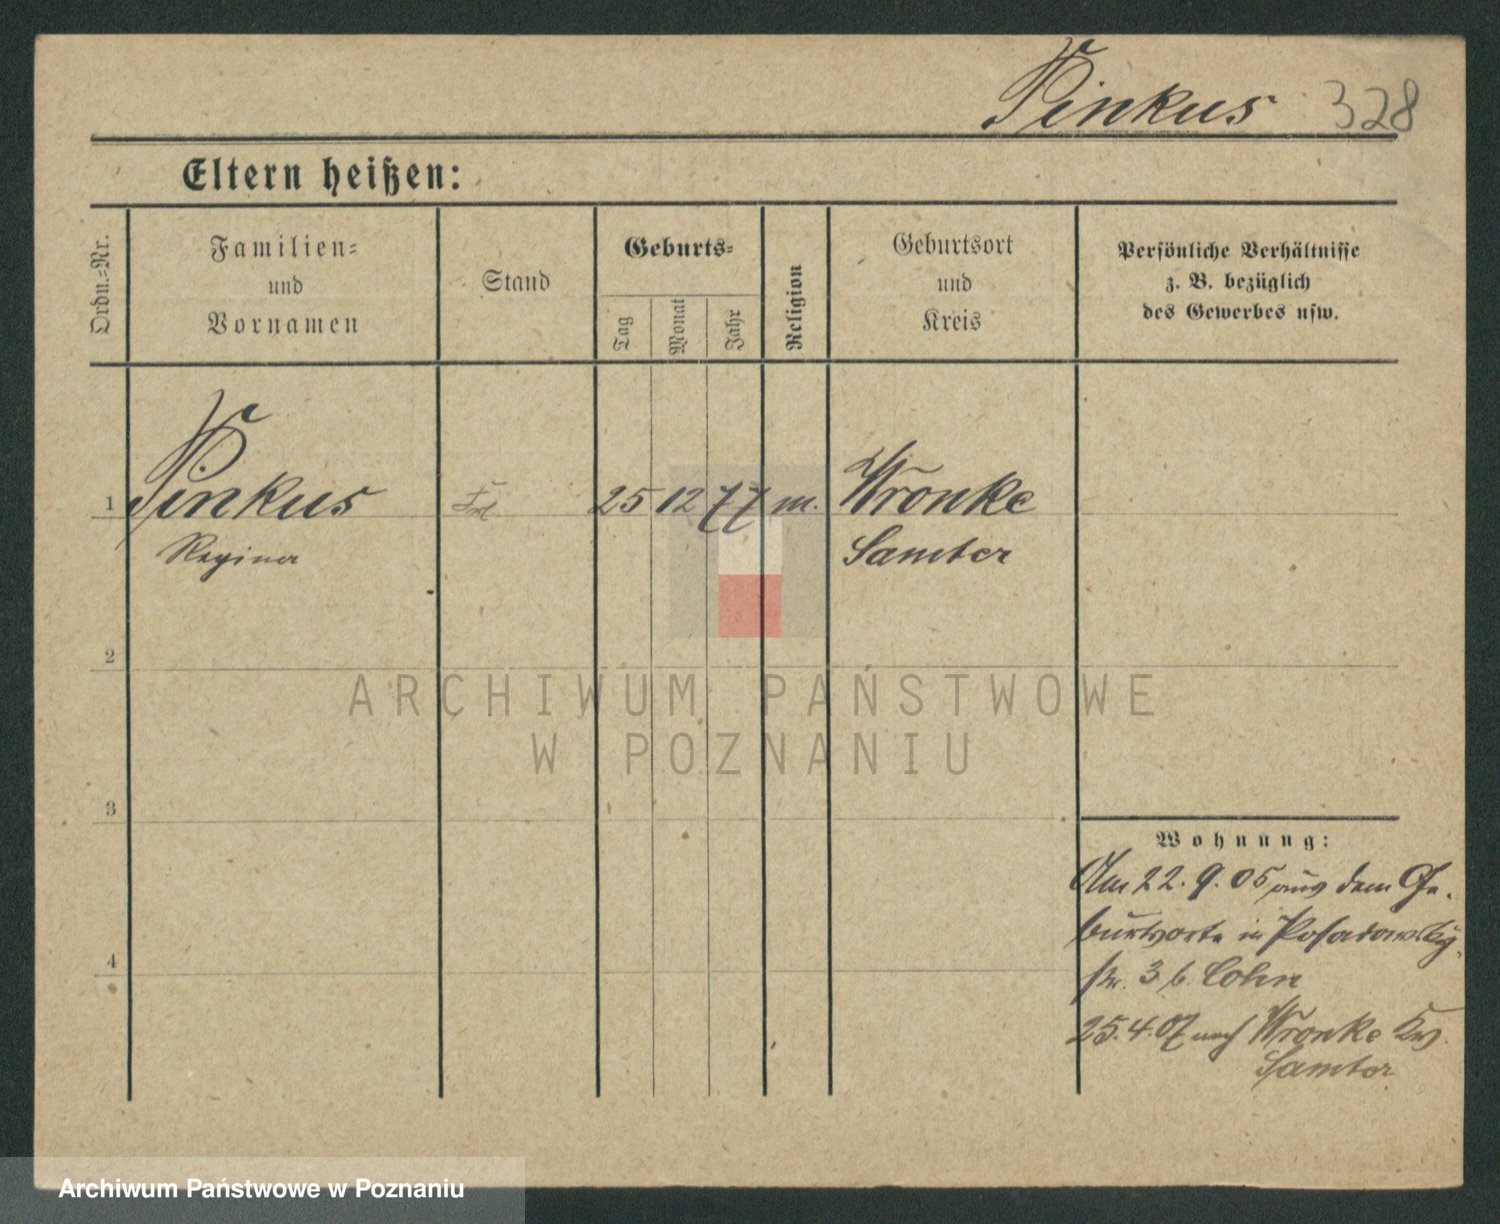 Pinkus 328
Eltern heißen:
Ordn.-Nr.
Familien-
und
Vornamen
Stand
Geburts-
Tag
Monat
Jahr
Religion
Geburtsort
und
Kreis
Persönliche Verhältnisse
z. B. bezüglich
des Gewerbes usw.
1 Pinkus 25 12 77 m. Wronke
Regina Samter
2
ARCHIWUM PAŃSTWOWE
W POZNANIU
3
Wohnung:
Am 22. 9. 05 aus dem Ge-
burtsorte in Posadowsky-
str. 3 b. Cohn
4
25. 4. 07 nach Wronke Krs.
Samter
Archiwum Państwowe w Poznaniu